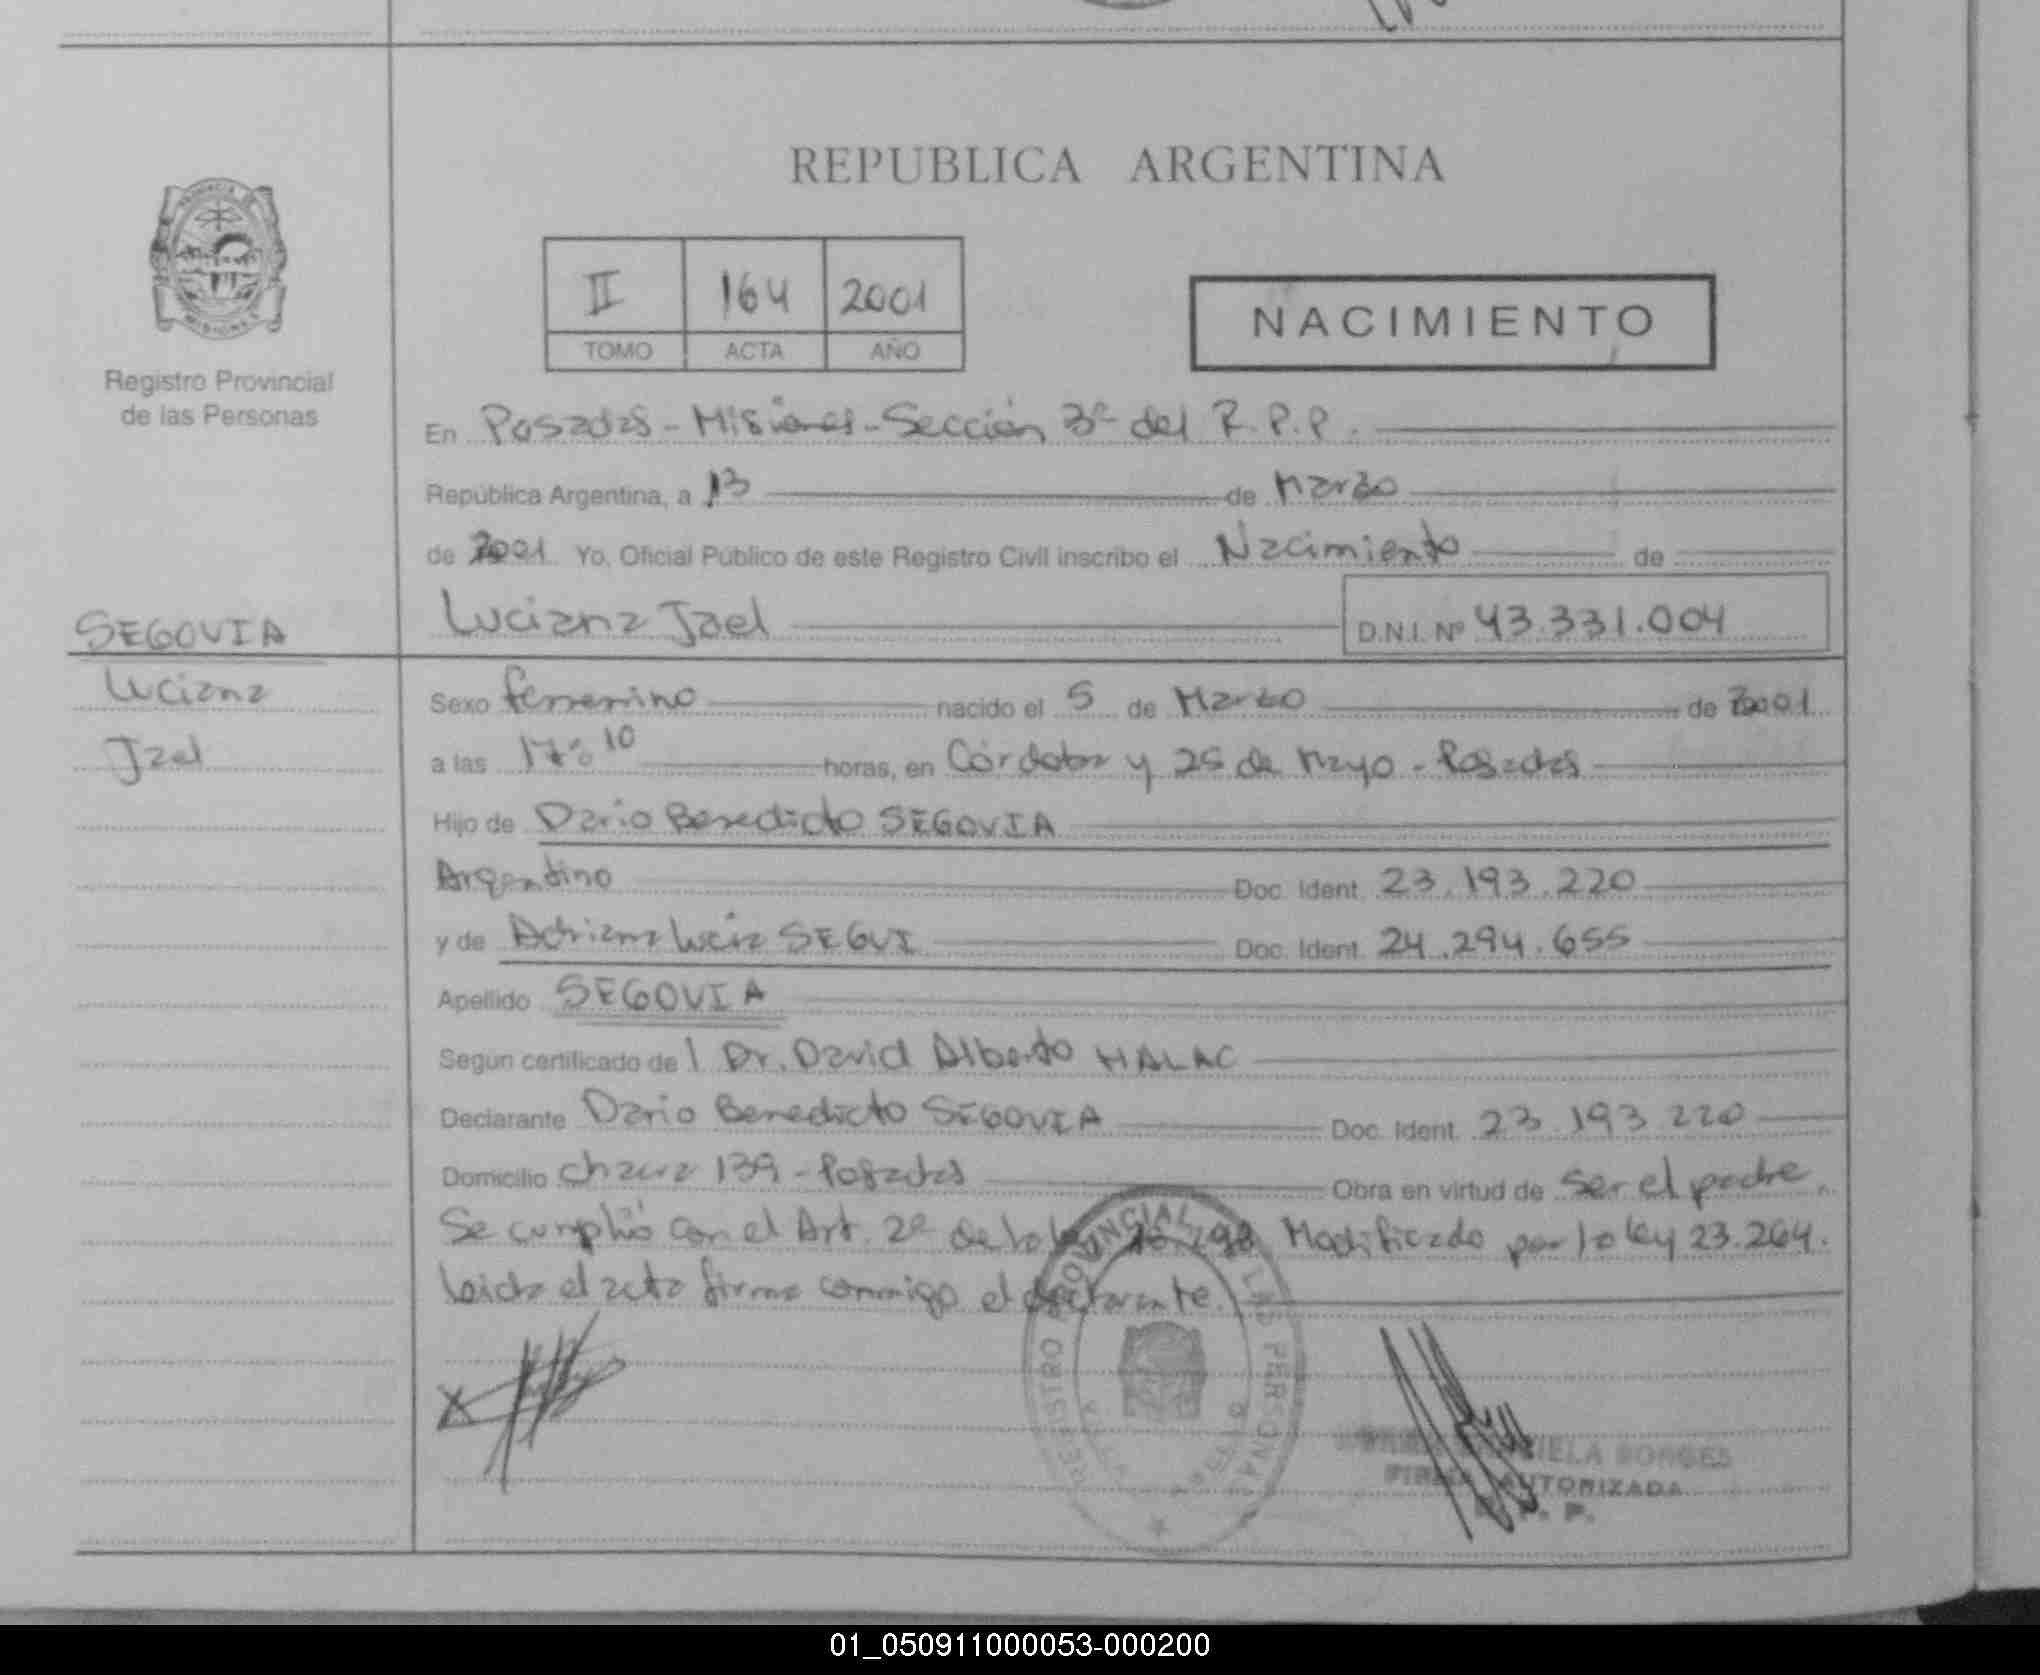 REPUBLICA ARGENTINA
PROVINCIA DE
MISIONES
Registro Provincial
de las Personas
II 164 2001
TOMO ACTA AÑO
NACIMIENTO
En Posadas - Misiones - Sección 3ª del R.P.P.
República Argentina, a 13 de Marzo
de 2001 Yo, Oficial Público de este Registro Civil inscribo el Nacimiento de
Luciana Jael D.N.I. Nº 43.331.004
SEGOVIA
Luciana
Jael
Sexo femenino nacido el 5 de Marzo de 2001
a las 17:10 horas, en Córdoba y 25 de Mayo - Posadas
Hijo de Dario Benedicto SEGOVIA
Argentino Doc. Ident. 23.193.220
y de Adriana Lucia SEGUI Doc. Ident. 24.294.655
Apellido SEGOVIA
Según certificado de l Dr. David Alberto HALAC
Declarante Dario Benedicto SEGOVIA Doc. Ident. 23.193.220
Domicilio chacra 139 - Posadas Obra en virtud de ser el padre.
Se cumplió con el Art. 2º de la Modificado por la ley 23.264.
Leida el acta firma conmigo el declarante.
REGISTRO PROVINCIAL DE LAS PERSONAS
BORGES
FIRMA AUTORIZADA
R. P. P.
01_050911000053-000200